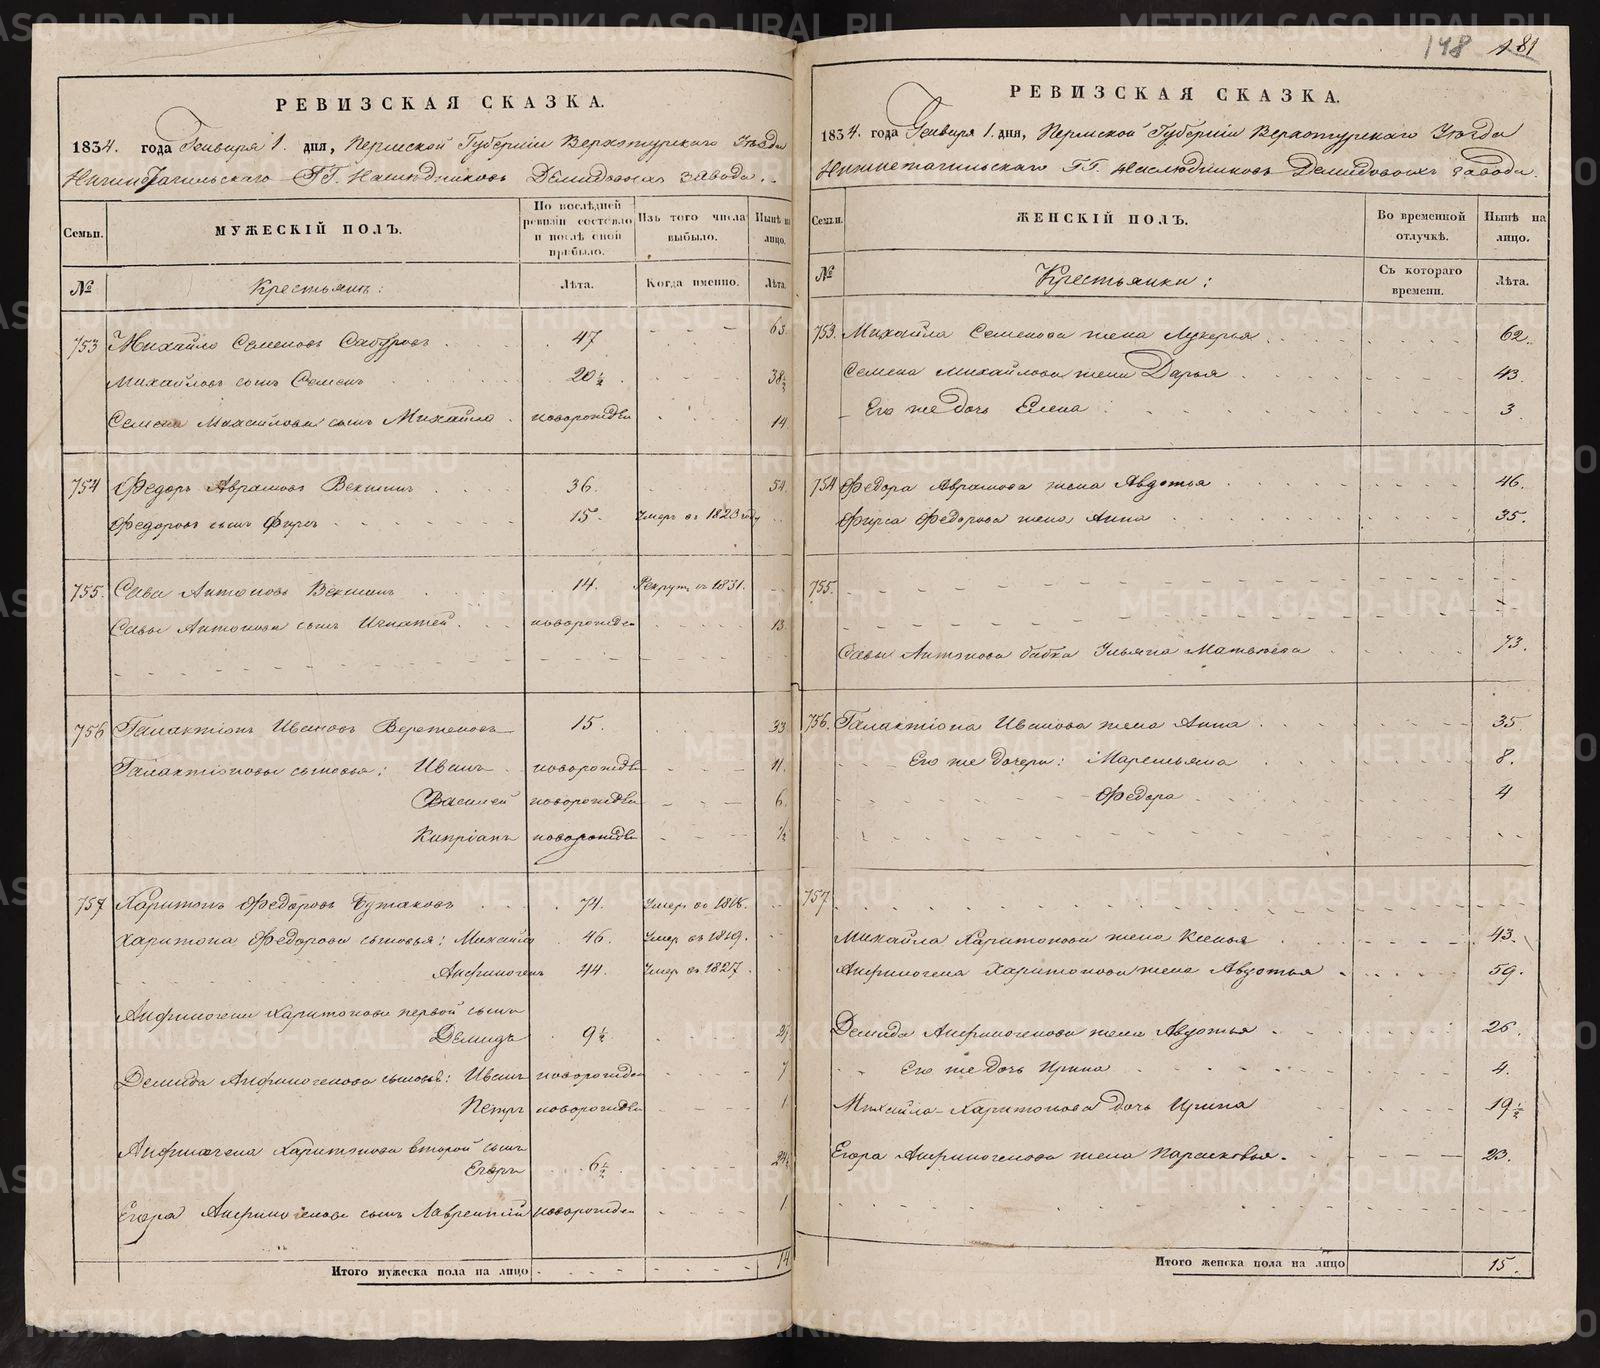 148 181
РЕВИЗСКАЯ СКАЗКА.
1834. года Генваря 1. дня, Пермской Губерніи Верхотурскаго Уѣзда
Нижнетагильскаго ГГ. Наслѣдниковъ Демидовыхъ завода.
Семьи. МУЖЕСКІЙ ПОЛЪ. По послѣдней ревизіи состояло и послѣ оной прибыло. Изъ того числа выбыло. Нынѣ на лицо.
№ Крестьянъ: Лѣта. Когда именно. Лѣта.
753 Михайло Семеновъ 47 63
Михайловъ сынъ Семенъ 20½ 38½
Семена Михайлова сынъ Михайло новорожден 14
754 Федоръ Аврамовъ Векшинъ 36. 54.
Федоровъ сынъ Фирсъ 15. Умеръ въ 1823 году
755. Сава Антоновъ Векшинъ 14. Рекрут. въ 1831.
Савы Антонова сынъ Игнатей новорожден 13
756 Галактіонъ Ивановъ Веретеновъ 15. 33
Галактіоновы сыновья: Иванъ новорожден 11.
Василей новорожден 6.
Кипріанъ новорожден ½
757 Харитонъ Федоровъ Бутаковъ 74. Умеръ въ
Харитона Федорова сыновья: Михайло 46. Умер въ 1819.
Анфиногенъ 44. Умеръ въ 1827.
Анфиногена Харитонова первой сынъ
Демидъ 9½
Демида Анфиногенова сыновья: Иванъ новорожден 7
Петръ новорожден 1
Анфиногена Харитонова второй сынъ
Егоръ 6½ 24½
Егора Анфиногенова сынъ Лаврентій новорожден 1
Итого мужеска пола на лицо 14
РЕВИЗСКАЯ СКАЗКА.
1834. года Генваря 1. дня, Пермской Губерніи Верхотурскаго Уѣзда
Нижнетагильскаго ГГ. Наслѣдниковъ Демидовыхъ завода.
Семьи. ЖЕНСКІЙ ПОЛЪ. Во временной отлучкѣ. Нынѣ на лицо.
№ Крестьянки: Съ котораго времени. Лѣта.
753. Михайла Семенова жена Лукерья 62.
Семена Михайлова жена Дарья 43.
Его же дочь Елена 3
754 Федора Аврамова жена Авдотья 46.
Фирса Федорова жена Анна 35.
755.
Савы Антонова бабка Ульяна Матвѣева 73.
756. Галактіона Иванова жена Анна 35
Его же дочери: Маремьяна 8.
Федора 4
757
Михайла Харитонова жена Ксенья 43.
Анфиногена Харитонова жена Авдотья 59.
Демида Анфиногенова жена Авдотья 26.
Его же дочь Ирина 4.
Михайла Харитонова дочь Ирина 19½
Егора Анфиногенова жена Парасковья 23.
Итого женска пола на лицо 15.